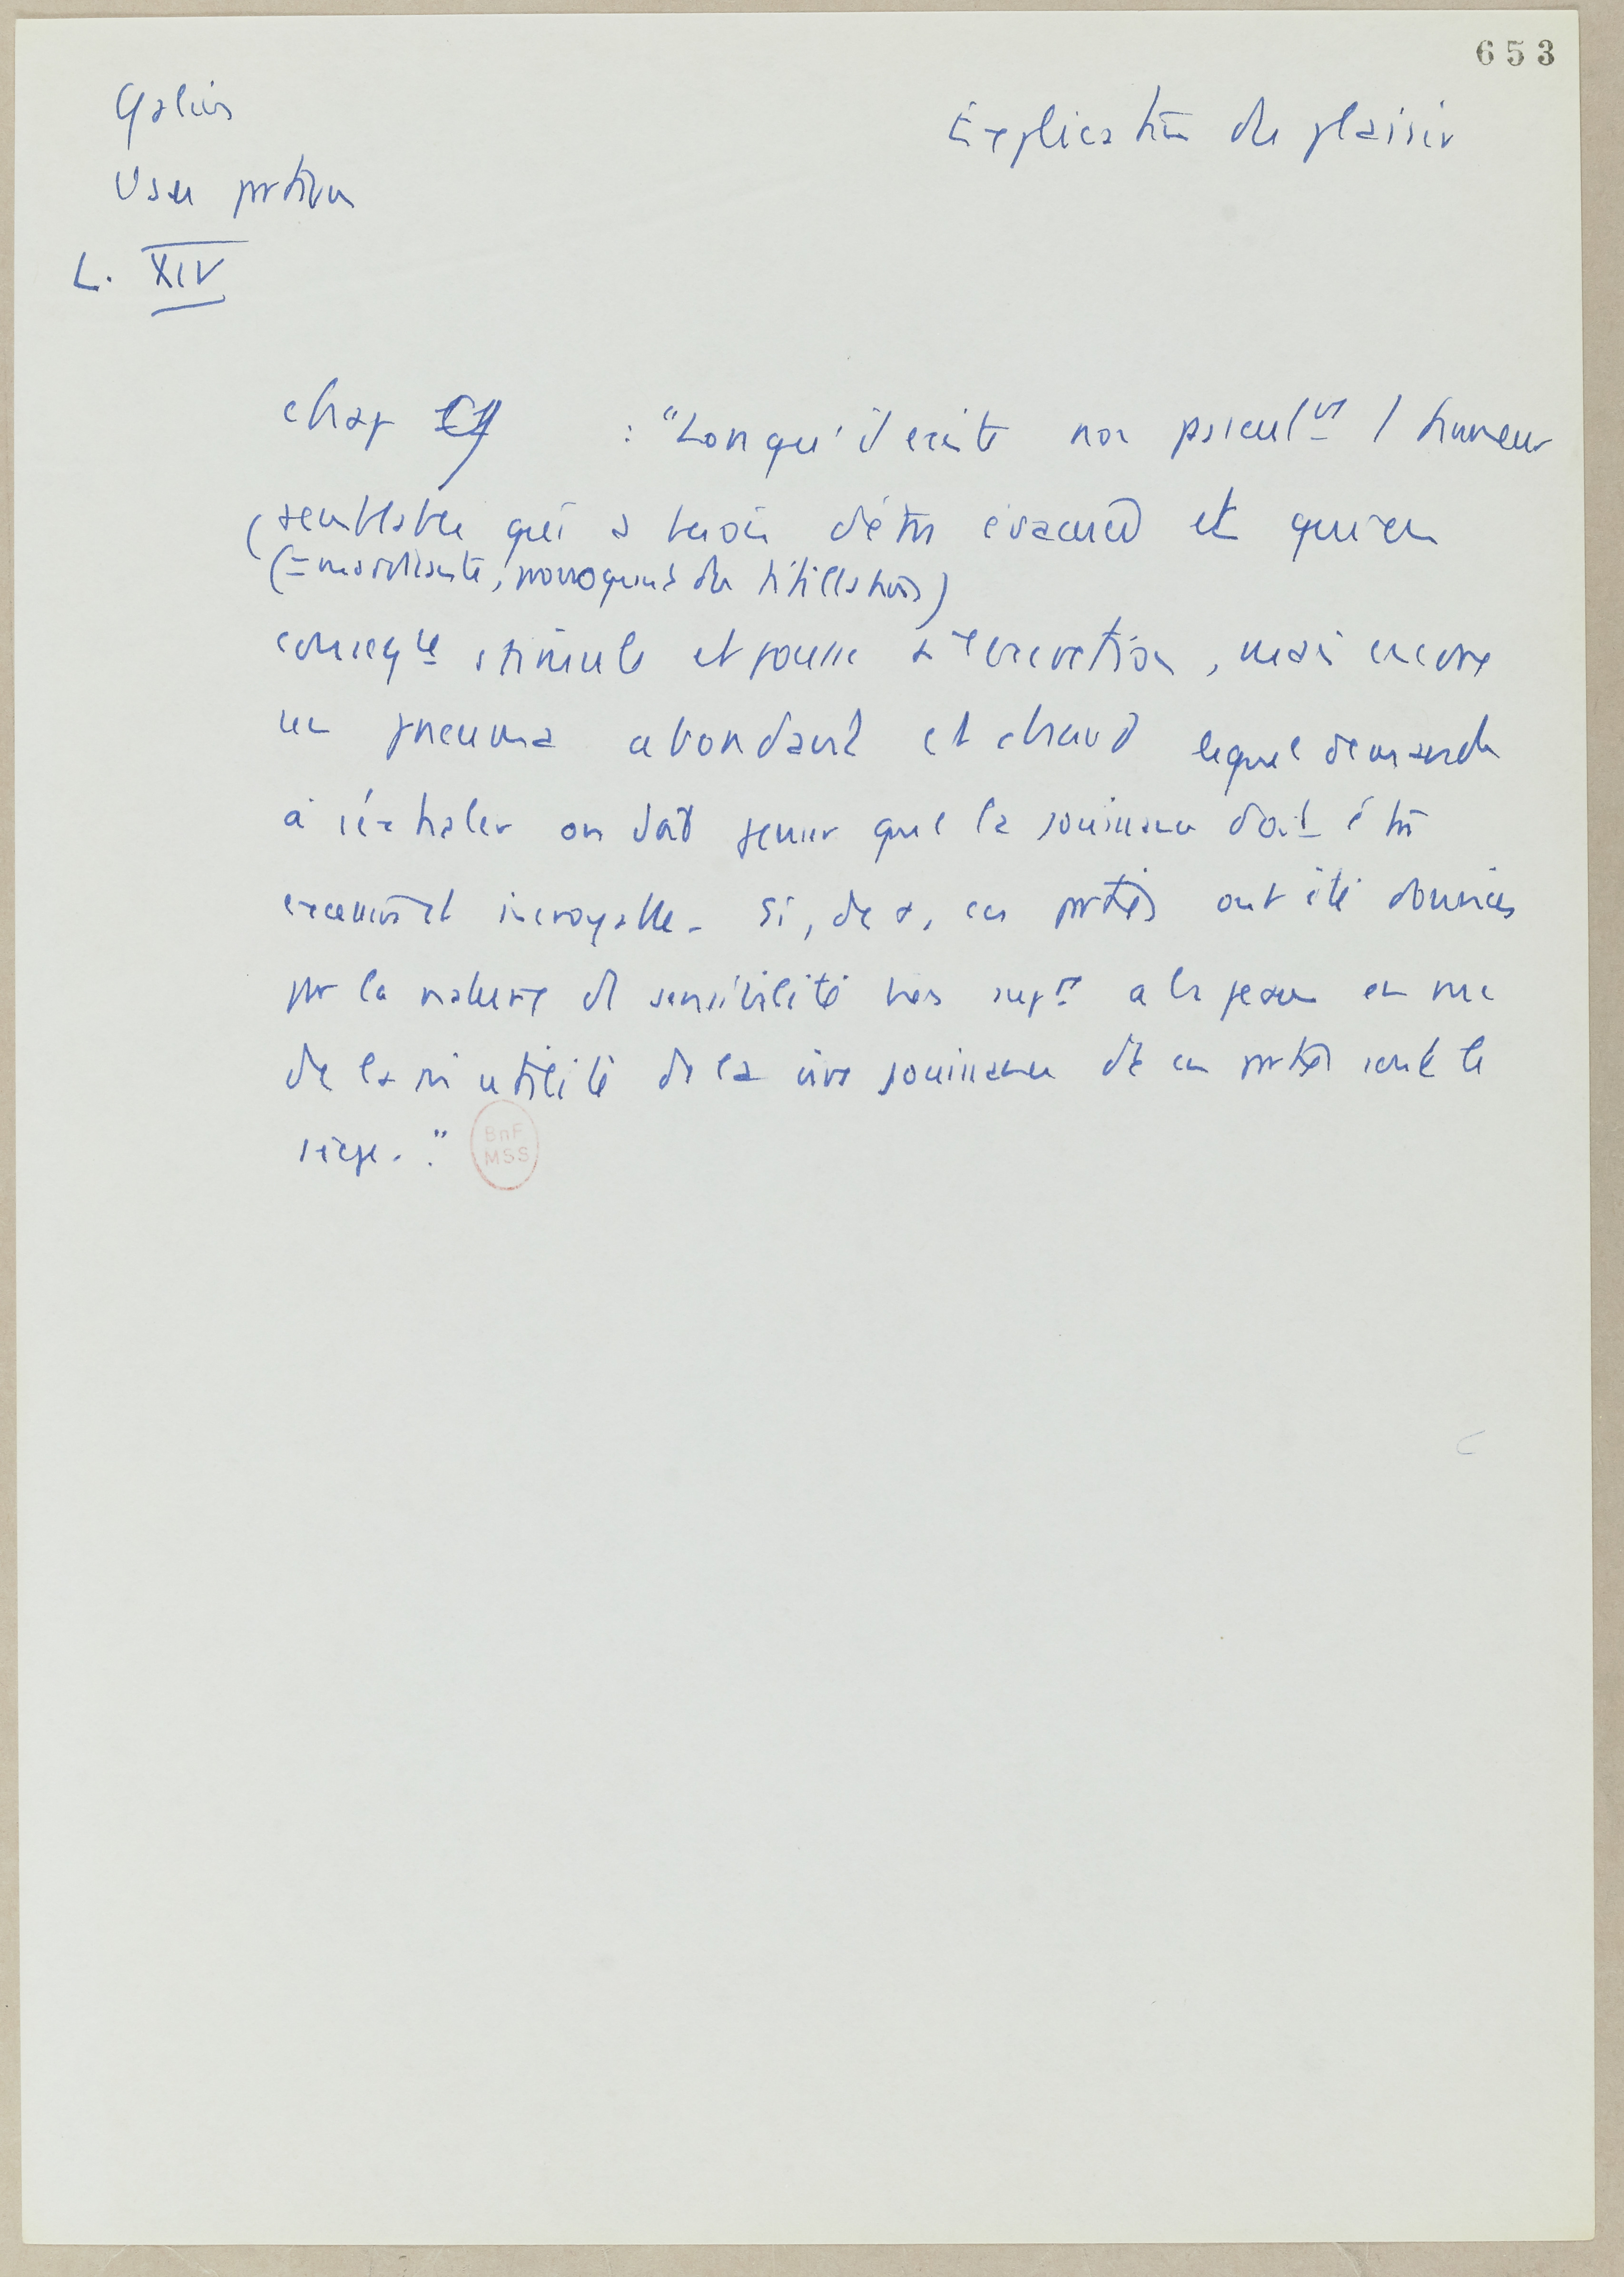 653
Galien
Usu partium
L. XIV
Explication du plaisir
chap : "Lorsqu'il existe non pas seul^t 1 humeur
(semblable qui a besoin d'être évacuée et qui en
(= mordicante, provoquant des titillations)
conseq^ce stimule et pousse à l'excrétion, mais encore
un pneuma abondant et chaud lequel demande
à s'exhaler on doit penser que la jouissance doit être
excessivt incroyable. Si, de +, ces parties ont été douées
par la nature d' sensibilité très sup^re a la peau en vue
de la m utilité de la vive jouissance dt ces parties sont le
siège."
BnF
MSS